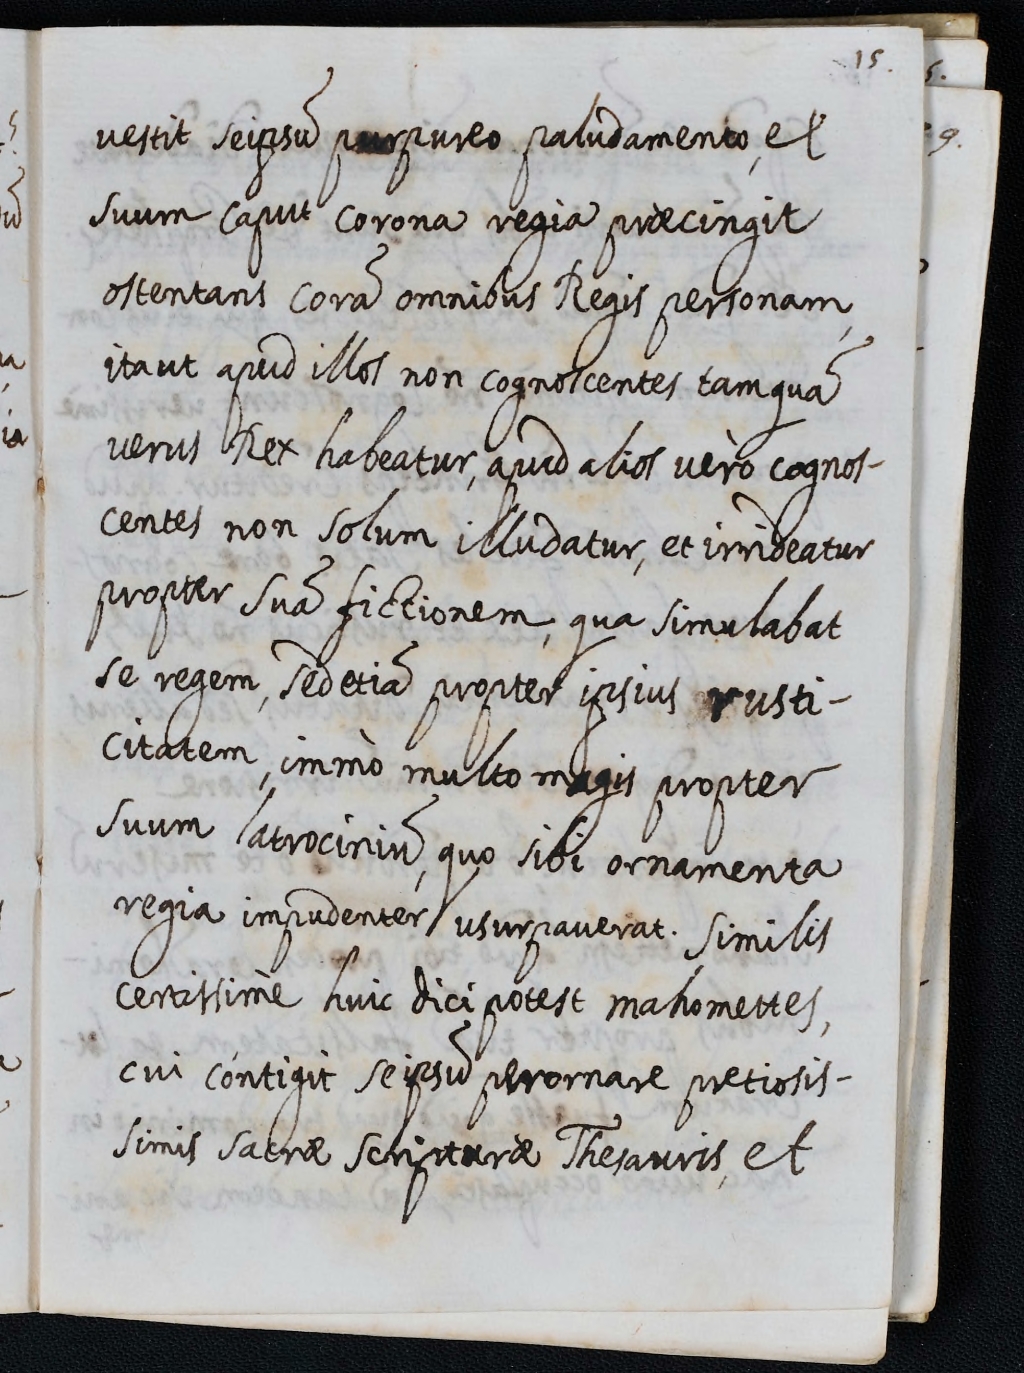 15.
vestit seipsũ purpureo paludamento, et
suum caput corona regia præcingit
ostentans corã omnibus Regis personam,
itaut apud illos non cognoscentes tamquã
verus Rex habeatur, apud alios verò cognos-
centes non solum illudatur, et irrideatur
propter suã fictionem, qua simulabat
se regem, sed etiã propter ipsius rusti-
citatem, immò multo magis propter
suum latrociniũ, quo sibi ornamenta
regia impudenter usurpaverat. Similis
certissimè huic dici potest mahomettes,
cui cóntigit seipsũ perornare pretiosis-
simis sacræ scripturæ Thesauris, et